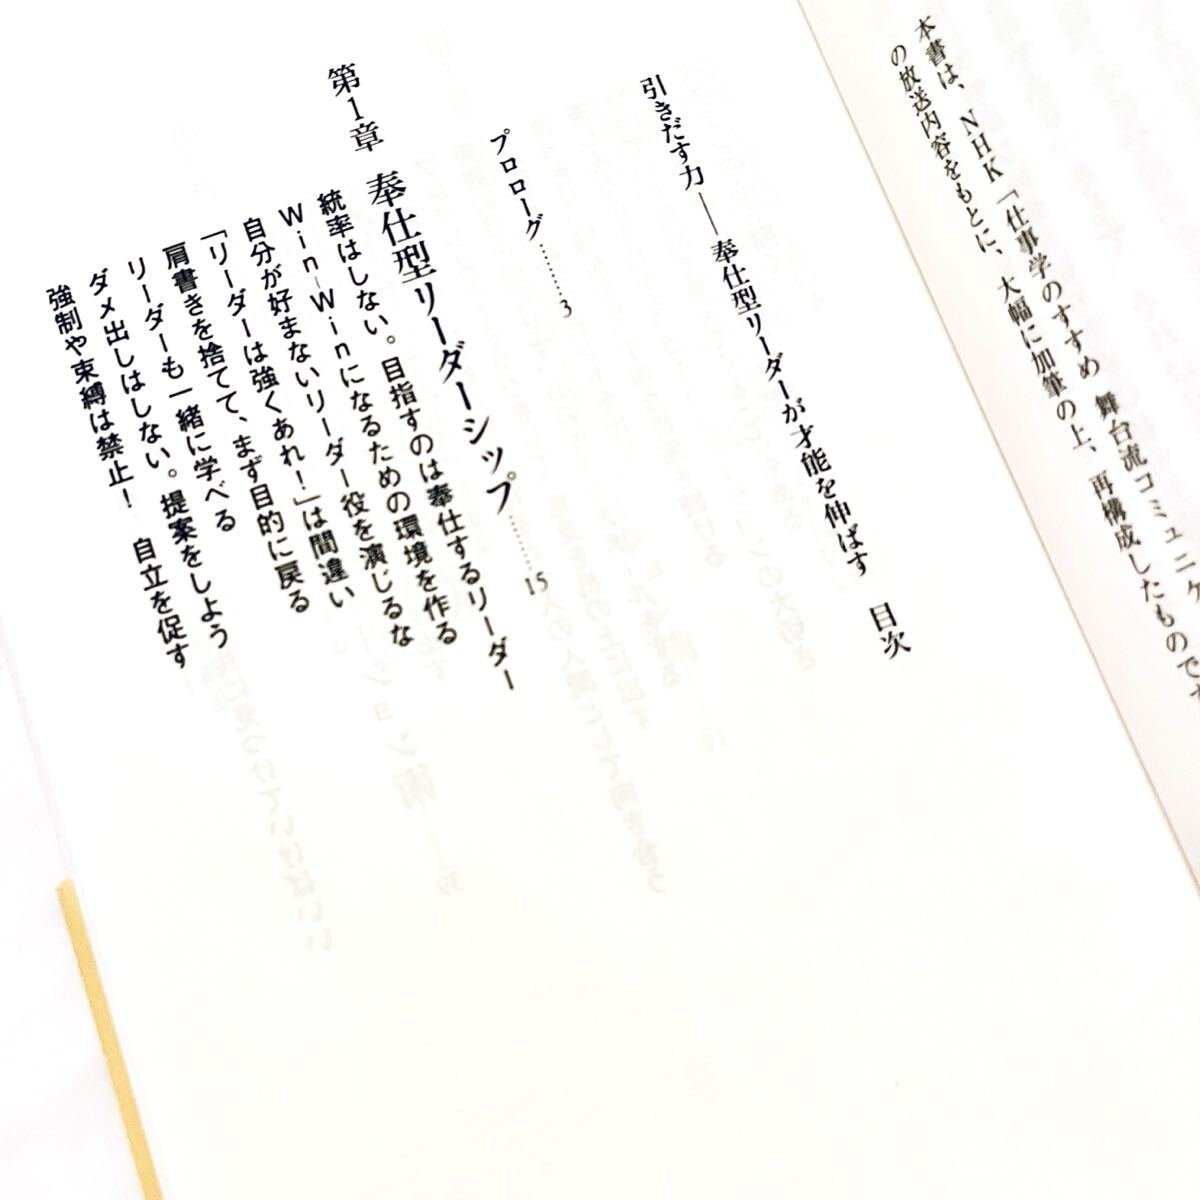 本書は、NHK「仕事学のすすめ 舞台流コミュニケ
の放送内容をもとに、大幅に加筆の上、再構成したものです
引きだす力――奉仕型リーダーが才能を伸ばす 目次
プロローグ………3
第1章 奉仕型リーダーシップ………15
統率はしない。目指すのは奉仕するリーダー
Win-Winになるための環境を作る
自分が好まないリーダー役を演じるな
「リーダーは強くあれ!」は間違い
肩書きを捨てて、まず目的に戻る
リーダーも一緒に学べる
ダメ出しはしない。提案をしよう
強制や束縛は禁止! 自立を促す